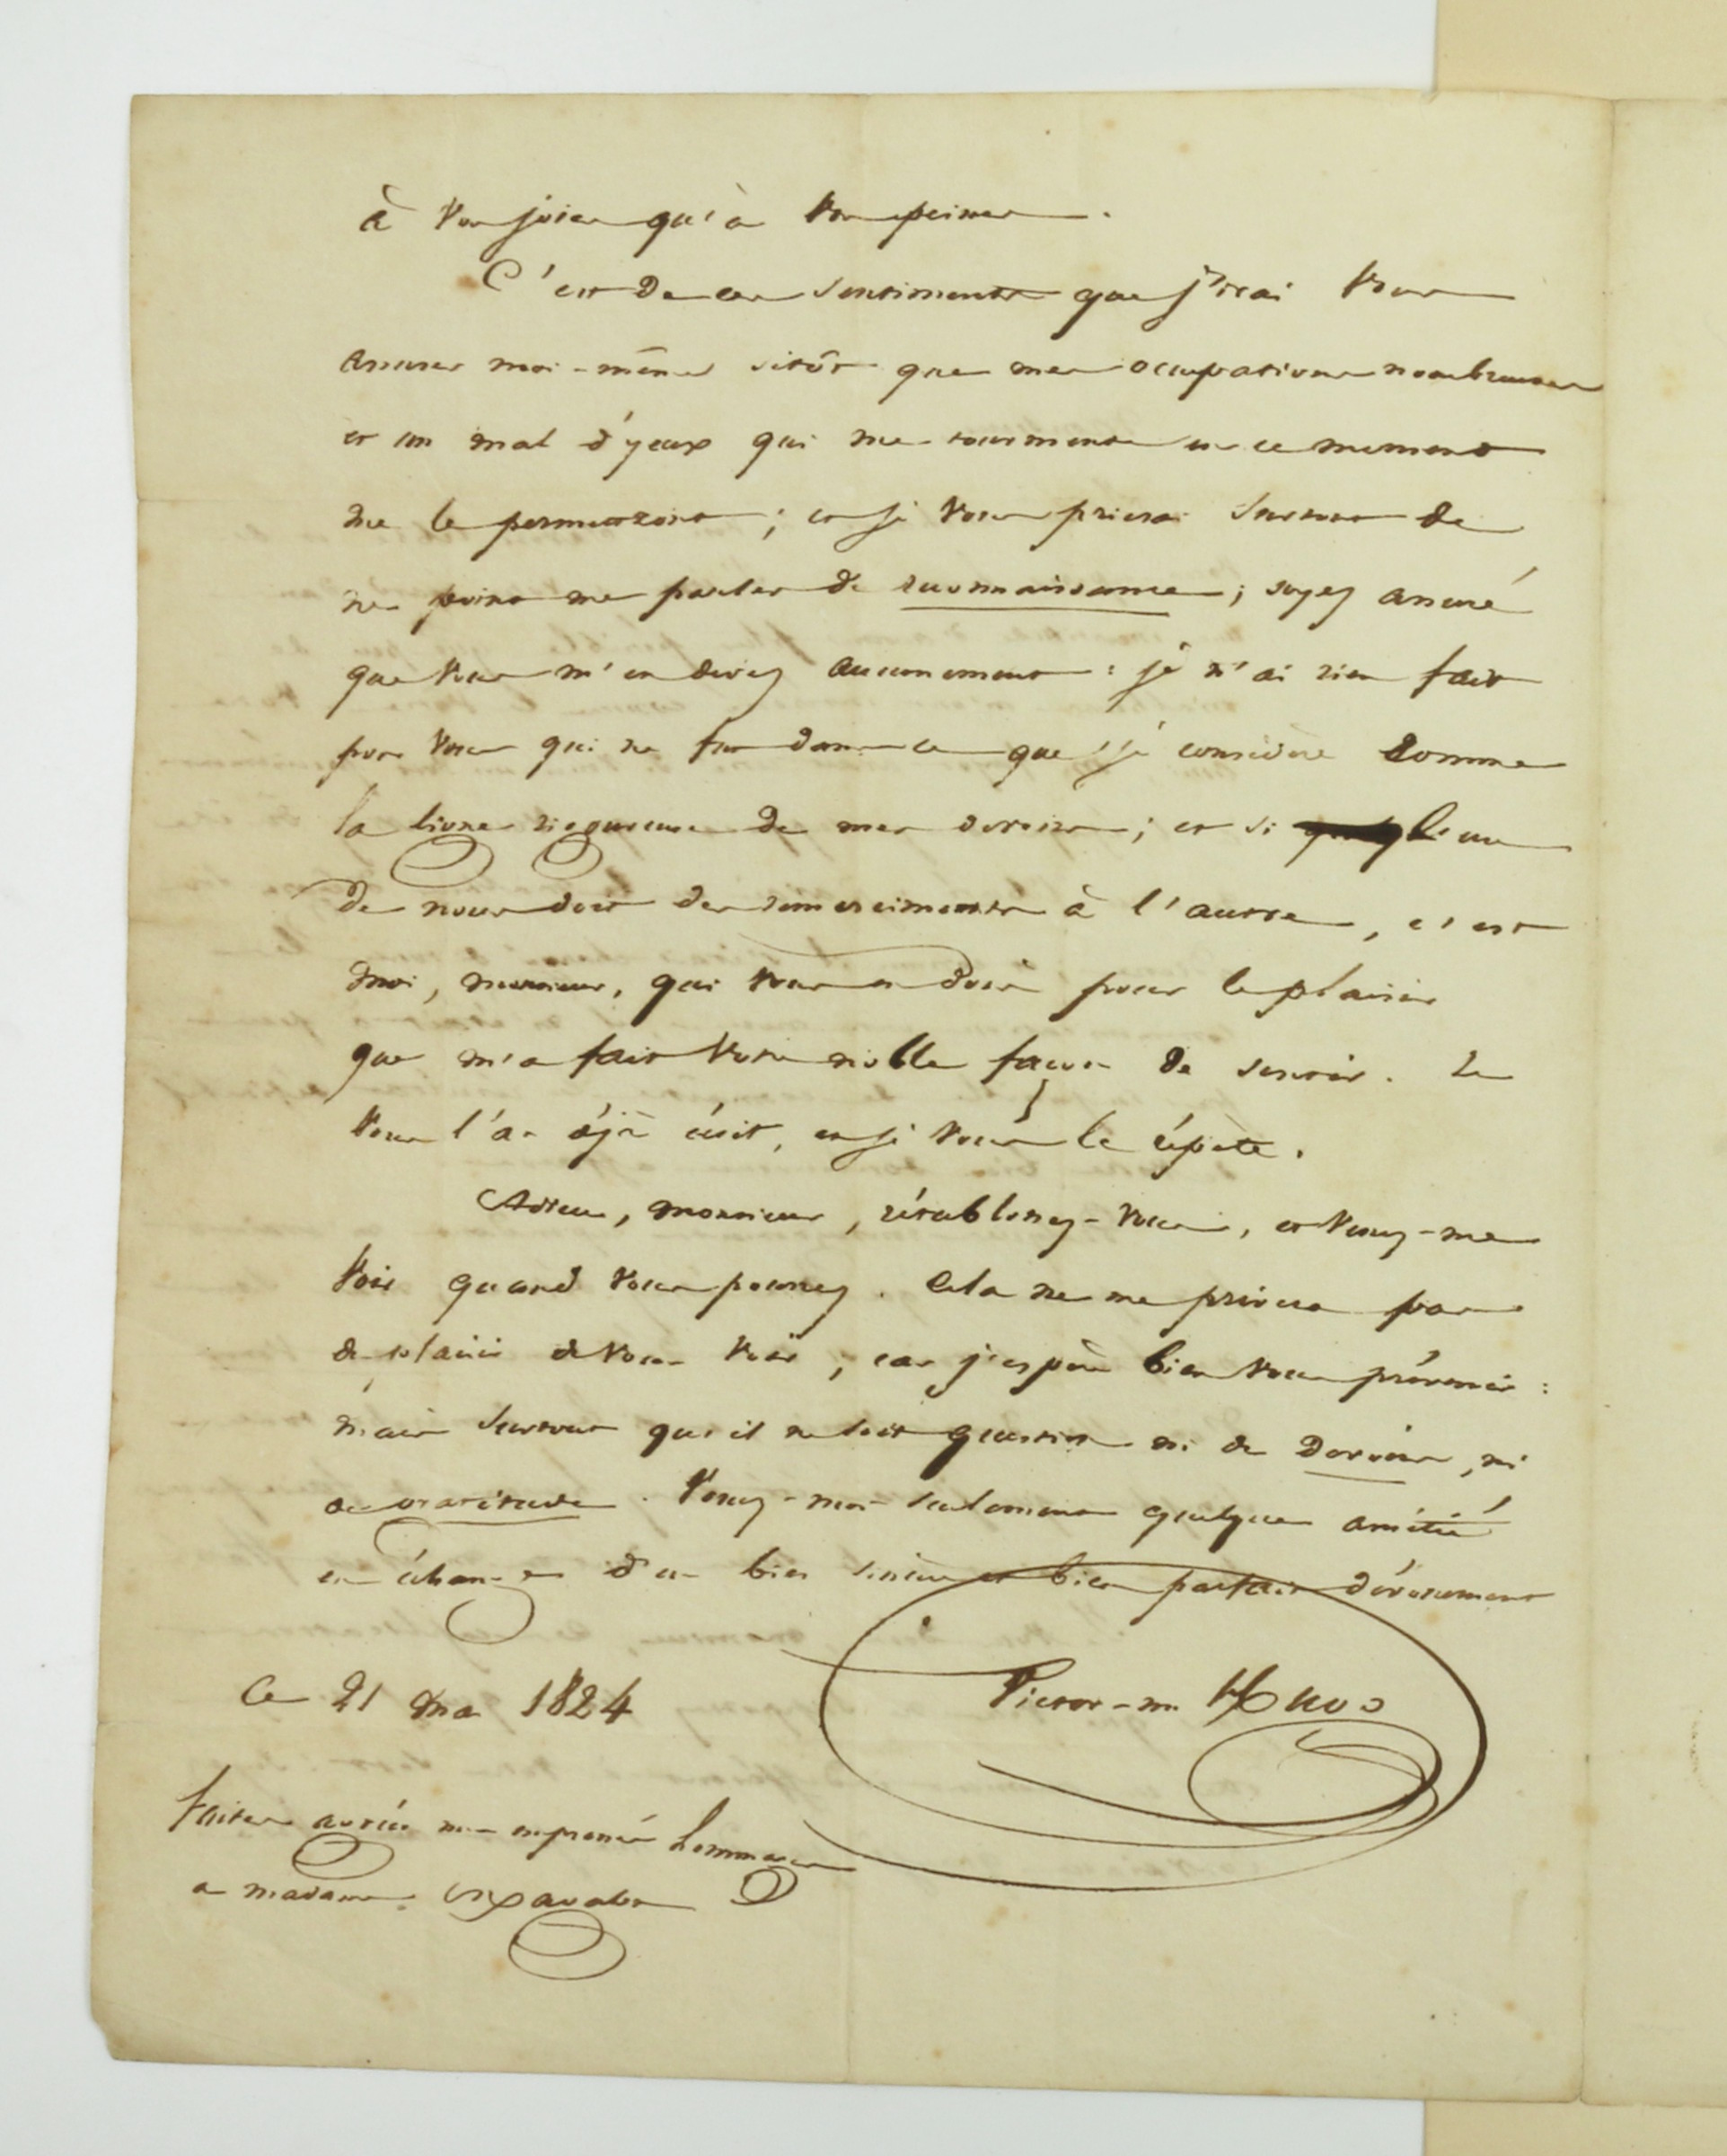 à vos joies qu'à vos peines.
C'est de ces sentiments que j'irai vous
assurer moi-même sitôt que mes occupations nombreuses
et un mal d'yeux qui me tourmente en ce moment
me le permettront ; et je vous prierai surtout de
ne point me parler de reconnaissance ; soyez assuré
que vous m'en devez aucunement : je n'ai rien fait
pour vous qui ne fut dans ce que je considère comme
la ligne rigoureuse de mes devoirs ; et si l'un
de nous doit des remerciements à l'autre, c'est
moi, monsieur, qui vous en dois pour le plaisir
que m'a fait votre noble façon de sentir. Je
vous l'ai déjà écrit, et je vous le répète.
Adieu, monsieur, rétablissez-vous, et venez me
voir quand vous pourrez. Cela ne me privera pas
du plaisir de vous voir, car j'espère bien vous prévenir :
mais surtout qu'il ne soit question ni de devoirs, ni
de gratitude. Vouez-moi seulement quelque amitié
en échange d'un bien sincère et bien parfait dévouement
Victor-M. Hugo
Ce 21 mai 1824
Faites agréer mes empressés hommages
à madame